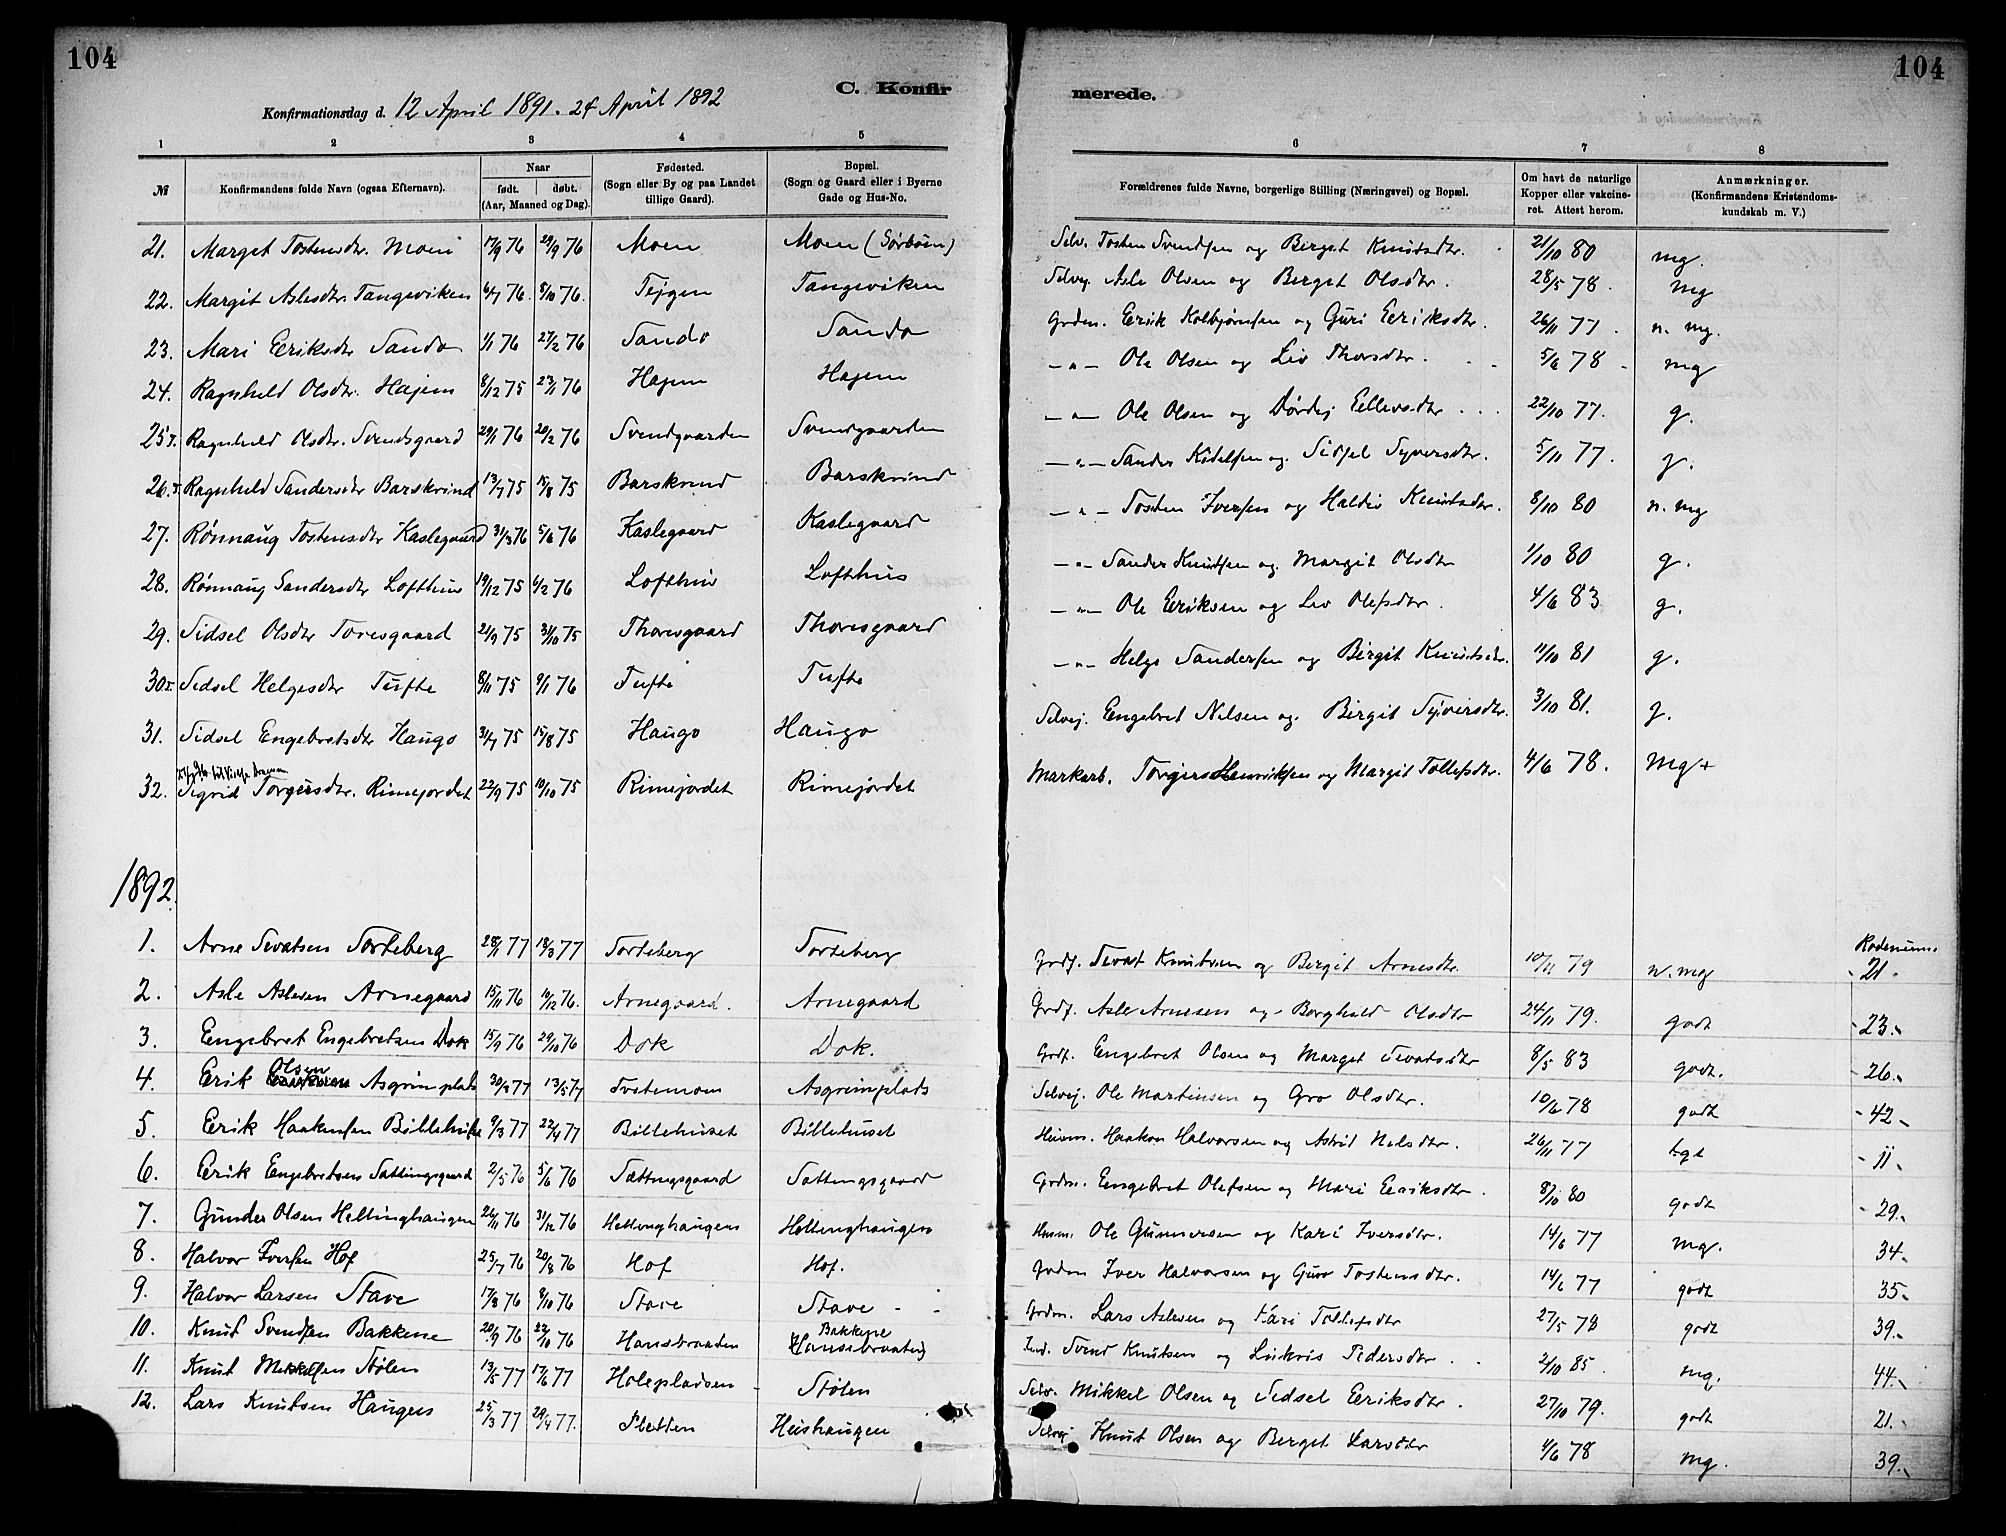 104
104
C. Konfir
merede.
Konfirmationsdag d. 12 April 1891. 24 April 1892
1 2 3 4 5 6 7 8
№ Konfirmandens fulde Navn (ogsaa Efternavn). Naar født. døbt. (Aar, Maaned og Dag). Fødested. (Sogn eller By og paa Landet tillige Gaard). Bopæl. (Sogn og Gaard eller i Byerne Gade og Hus-No. Forældrenes fulde Navne, borgerlige Stilling (Næringsvei) og Bopæl. Om havt de naturlige Kopper eller vakcineret. Attest herom. Anmærkninger. (Konfirmandens Kristendomskundskab m. V.)
21. Marget Tostensdtr. Moen 17/9 76 29/9 76 Moen Moen (Sørbøen) Selv. Tosten Svendsen og Berget Knutsdtr. 21/10 80 mg.
22. Margit Aslesdtr. Tangeviken 6/7 76. 8/10 76. Tejgen Tangeviken Selvej. Asle Olsen og Berget Olsdtr. 28/5 78. mg
23. Mari Eeriksdtr Sando 1/1 76 27/2 76 Sando Sando Grdm. Eerik Kolbjørnsen og Guri Eeriksdtr. 26/11 77. n. mg.
24. Ragnheld Olsdtr. Hajem 8/12 75 23/1 76 Hajem Hajem — " — Ole Olsen og Liv Thorsdtr. 5/6 78 mg
25. Ragnheld Olsdtr. Svendsgaard 29/1 76 20/2 76 Svendgaarden Svendgaarden — " — Ole Olsen og Dørdej Eellevsdtr 22/10 77. g.
26. Ragnheld Sandersdtr Barskrind 13/7 75 15/8 75 Barskrind Barskrind — " — Sander Kittelsen og Sidsel Syversdtr. 5/11 77. g.
27. Rønnaug Tostensdtr Kaslegaard 31/3 76 5/6 76 Kaslegaard Kaslegaard — " — Tosten Iversen og Haldis Knutsdtr. 8/10 80 n. mg
28. Rønnaug Sandersdtr Lofthus 19/12 75 6/2 76 Lofthus Lofthus — " — Sander Knutsen og Margit Olsdtr 1/10 80 g.
29. Sidsel Olsdtr Toresgaard 21/9 75 31/10 75 Thoresgaard Thoresgaard — " — Ole Eeriksen og Liv Olefsdtr. 4/6 83 g.
30. Sidsel Helgesdtr Tufte 8/11 75 9/1 76 Tufte Tufte — " — Helge Sandersen og Birgit Knutsdtr. 11/10 81 g.
31. Sidsel Engebretsdtr Haugo 31/7 75 15/8 75 Haugo Haugo Selvej. Engebret Nilsen og Birgit Syversdtr. 3/10 81. g.
32. Sigrid Torgersdtr. Rimejordet 22/9 75 10/10 75 Rimejordet Rimejordet Markarb. Torgers Henriksen og Margit Tollefsdtr. 4/6 78. Mg+
1892.
1. Arne Sevatsen Torteberg 28/1 77 18/3 77 Torteberg Torteberg Grdf. Sevat Knutsen og Birgit Arnesdtr. 10/11 79 n. mg 21.
2. Asle Aslesen Arnegaard 15/11 76 10/12 76. Arnegaard. Arnegaard Grdf. Asle Arnesen og Borghild Olsdtr 24/11 79. godt 23.
3. Engebret Engebretsen Dok 15/9 76 29/10 76 Dok Dok. Grdf. Engebret Olsen og Marget Sevatsdtr 8/5 83 godt. 26.
4. Erik Olsen Asgrimplads 30/3 77 13/5 77 Asgrimplads Selvej. Ole Martinsen og Gro Olsdtr. 10/6 78 godt 42.
5. Eerik Haakensen Billehuset 9/3 77 22/4 77 Billehuset Billehuset Husm. Haakon Halvorsen og Astrid Nilsdtr. 26/11 77 11.
6. Eerik Engebretsen Sattingsgaard 2/5 76 5/6 76 Sættingsgaard Sattingsgaard Grdm. Engebret Olefsen og Mari Eeriksdtr. 8/10 80 godt 29.
7. Gunder Olsen Hellinghaugen 26/11 76 31/12 76 Hellinghaugen Hellinghaugen Husm. Ole Gunnersen og Kari Iversdtr. 14/6 77 mg. 34.
8. Halvor Iversen Hof 25/7 76 20/8 76 Hof Hof. Grdm Iver Halvorsen og Guro Tostensdtr. 14/6 77 godt 35.
9. Halvor Larsen Stave 17/8 76 8/10 76 Stave Stave Grdm. Lars Aslesen og Kari Tollefsdtr 27/5 78 godt 39.
10. Knut Svendsen Bakkene 20/9 76 22/10 76 Hansebraaten Bakkene Hansebraaten Ind. Svend Knutsen og Lukris Pedersdtr 2/10 85. mg. 44.
11. Knut Mikkelsen Stølen 13/5 77 17/6 77 Holepladsen Stølen Selv. Mikkel Olsen og Sidsel Eeriksdtr. 27/10 79. godt 21.
12. Lars Knutsen Haugen 25/3 77 29/4 77. Sletten Heishaugen Selvej Knut Olsen og Berget Larsdtr 4/6 78 mg. 39.